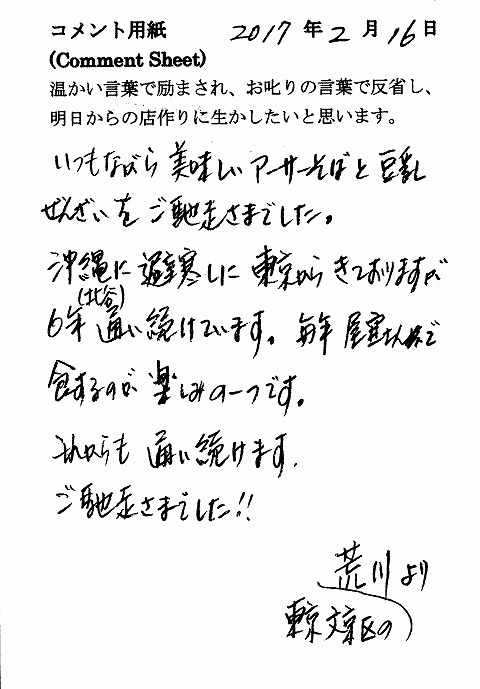 コメント用紙 2017年2月16日
(Comment Sheet)
温かい言葉で励まされ、お叱りの言葉で反省し、
明日からの店作りに生かしたいと思います。
いつもながら美味しいアーサーそばと豆乳
ぜんざいをご馳走さまでした。
沖縄に避寒しに東京からきておりますが
(北谷)
6年通い続けています。毎年屋宜さんで
食するのが楽しみの一つです。
これからも通い続けます。
ご馳走さまでした!!
荒川より
東京文京区の